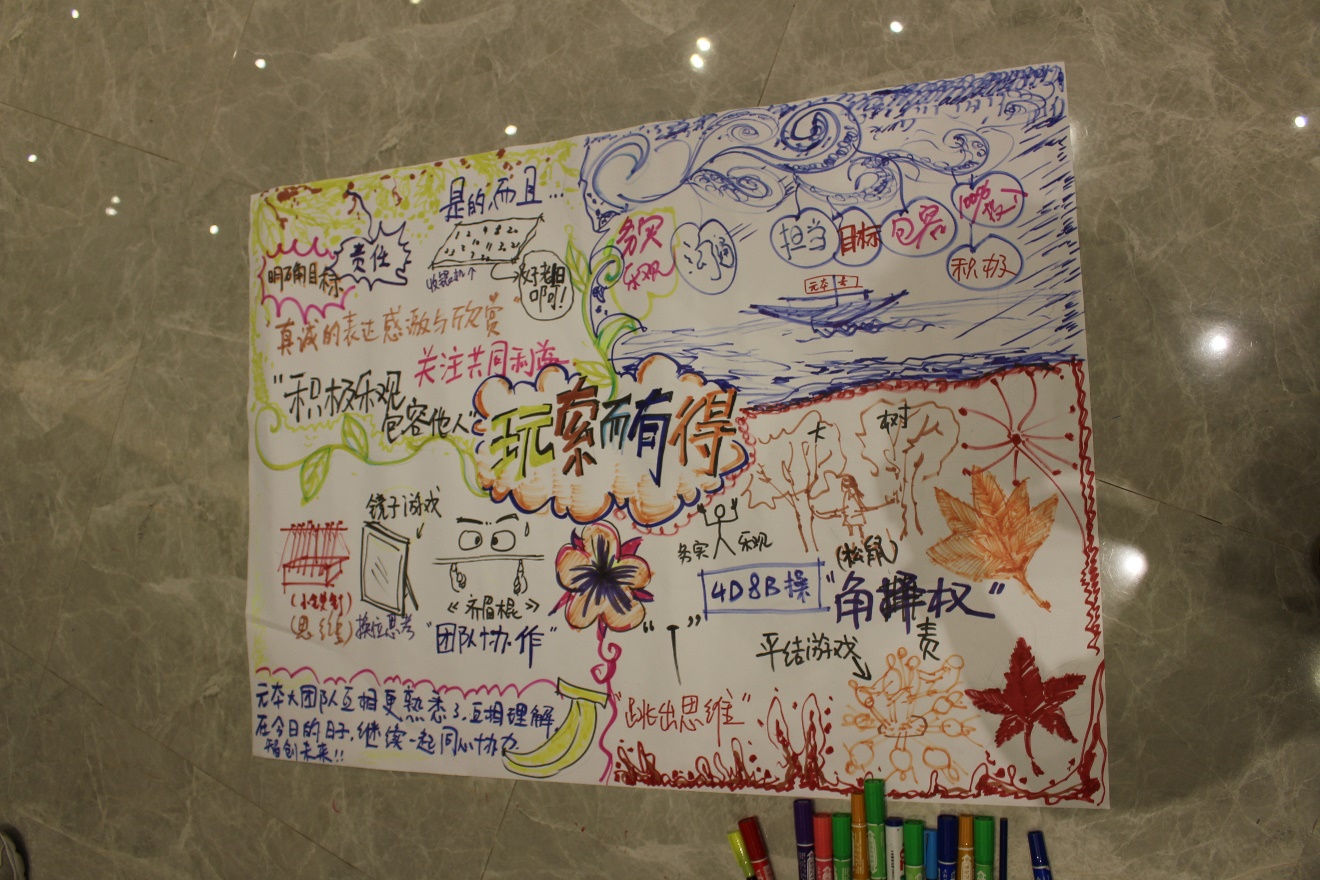 是的,而且…
责任
明确目标
真诚的表达感激与欣赏
关注共同利益
"积极乐观
包容他人"
务实
乐观
沟通
担当
目标
包容
积极
玩索而有得
大树
(松鼠)
务实 乐观
4D8B操
"角择权"
责
平结游戏
"跳出思维"
镜子游戏
(思维)
换位思考
《齐眉棍》
"团队协作"
"T"
元本大团队互相更熟悉了.互相理解.
在今日的日子.继续一起同心协力
福创未来!!